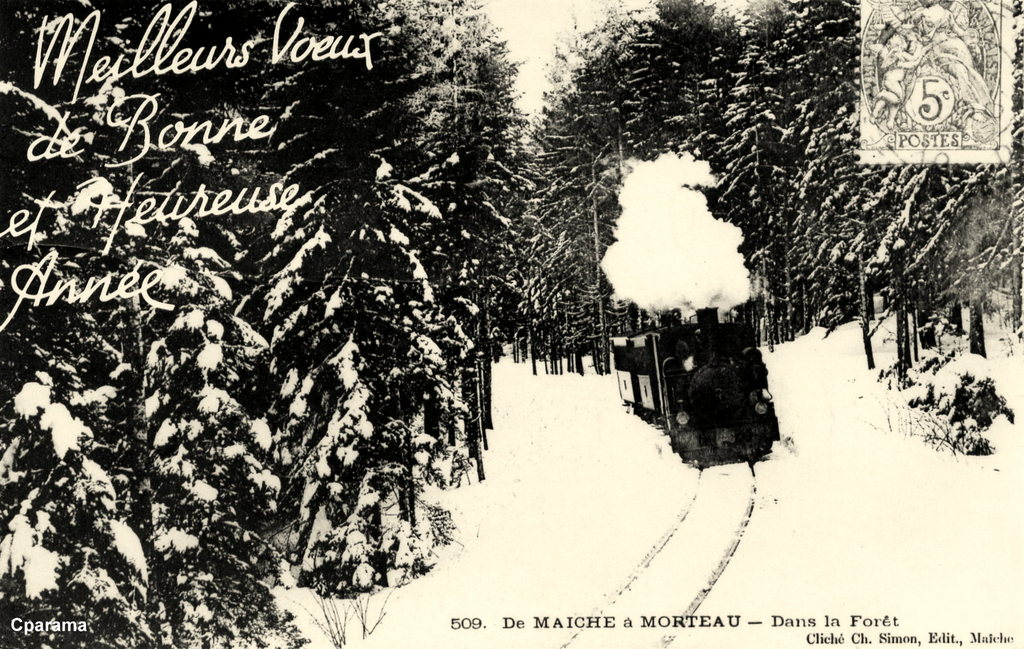 Meilleurs Voeux
de Bonne
et Heureuse
Année
5c
POSTES
Cparama
509. De MAICHE à MORTEAU — Dans la Forêt
Cliché Ch. Simon, Edit., Maîche